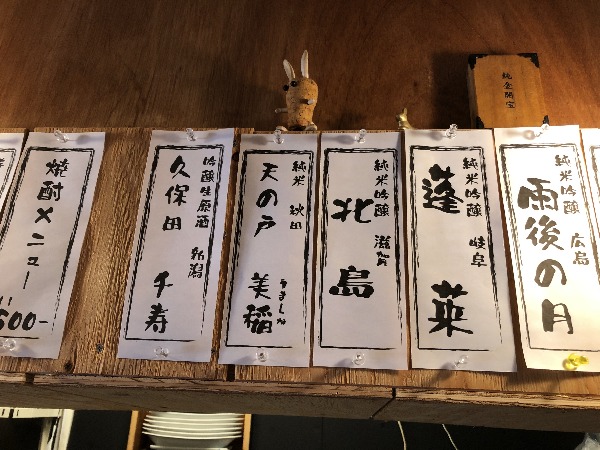 純金開宝
純米吟醸 広島
雨後の月
純米吟醸 岐阜
蓬莱
純米吟醸 滋賀
北島
純米 秋田
天の戸 美稲
うましね
吟醸生原酒 新潟
久保田 千寿
焼酎メニュー
500-